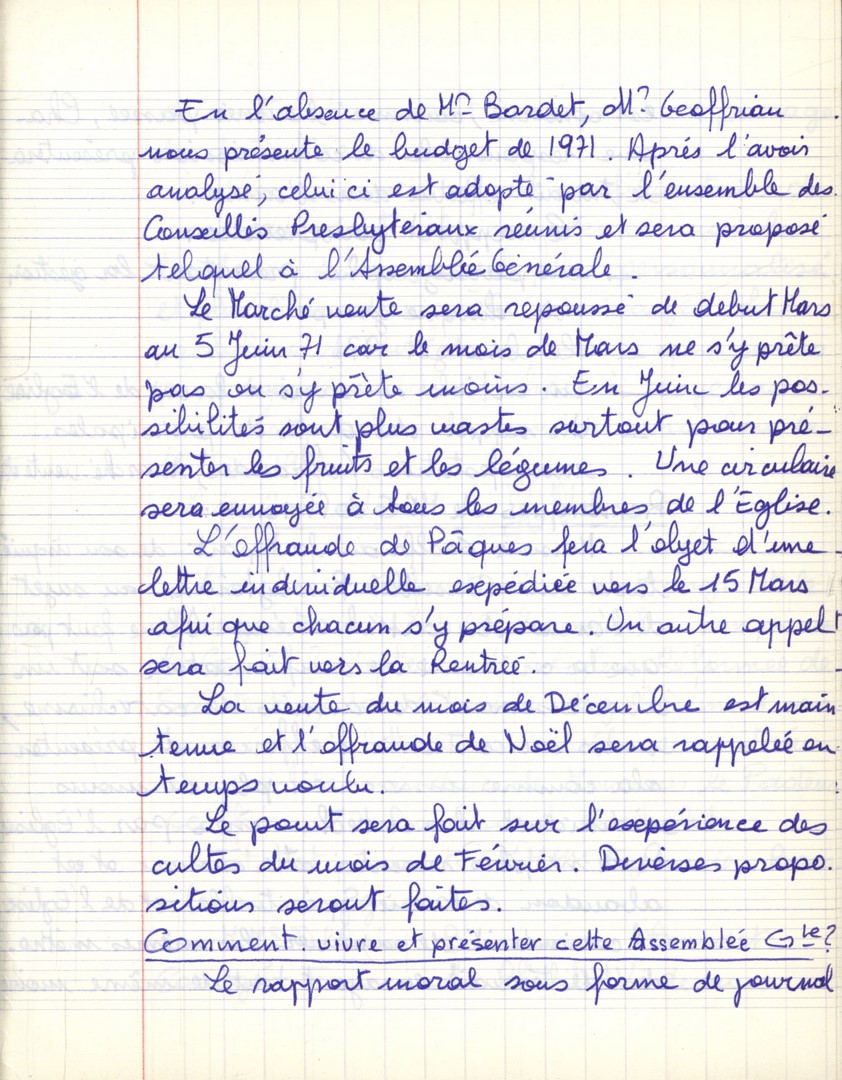 En l'absence de Mr Bardet, Mr Geoffrian
nous présente le budget de 1971. Aprés l'avoir
analysé, celui ci est adopté par l'ensemble des
Conseillés Presbytéraux réunis et sera proposé
tel quel à l'Assemblée Générale.
Le Marché vente sera repoussé de debut Mars
au 5 Juin 71 car le mois de Mars ne s'y prête
pas ou s'y prête moins. En Juin les pos-
sibilités sont plus vastes surtout pour pré-
senter les fruits et les légumes. Une circulaire
sera envoyée à tous les membres de l'Eglise.
L'offrande de Pâques fera l'objet d'une
lettre individuelle expédiée vers le 15 Mars
afin que chacun s'y prépare. Un autre appel
sera fait vers la Rentrée.
La vente du mois de Décembre est main
tenue et l'offrande de Noël sera rappelée en
temps voulu.
Le point sera fait sur l'expérience des
cultes du mois de Février. Diverses propo.
sitions seront faites.
Comment vivre et présenter cette Assemblée Gle?
Le rapport moral sous forme de journal